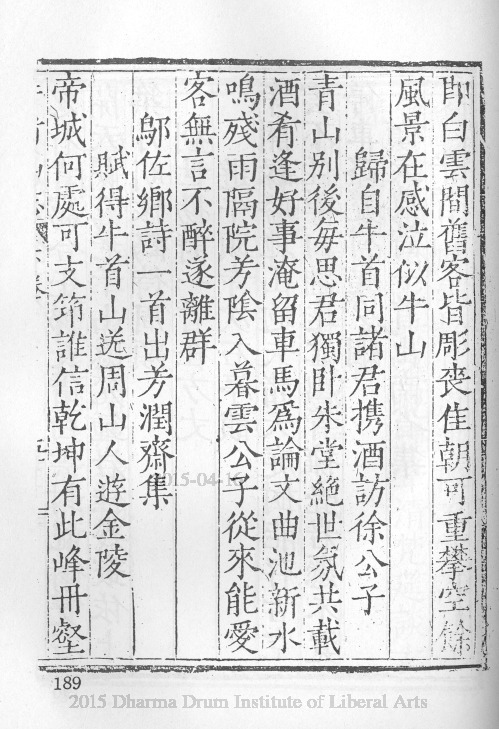 即白雲間舊客皆彫喪佳朝可重攀空餘
風景在感泣似牛山
歸自牛首同諸君携酒訪徐公子
青山別後每思君獨卧朱堂絕世氛共載
酒肴逢好事淹留車馬為論文曲池新水
鳴殘雨隔院芳陰入暮雲公子從來能愛
客無言不醉遂離群
鄔佐卿詩一首出芳潤齋集
賦得牛首山送周山人遊金陵
帝城何處可支笻誰信乾坤有此峰冊壑
2015-04-16
189
2015 Dharma Drum Institute of Liberal Arts